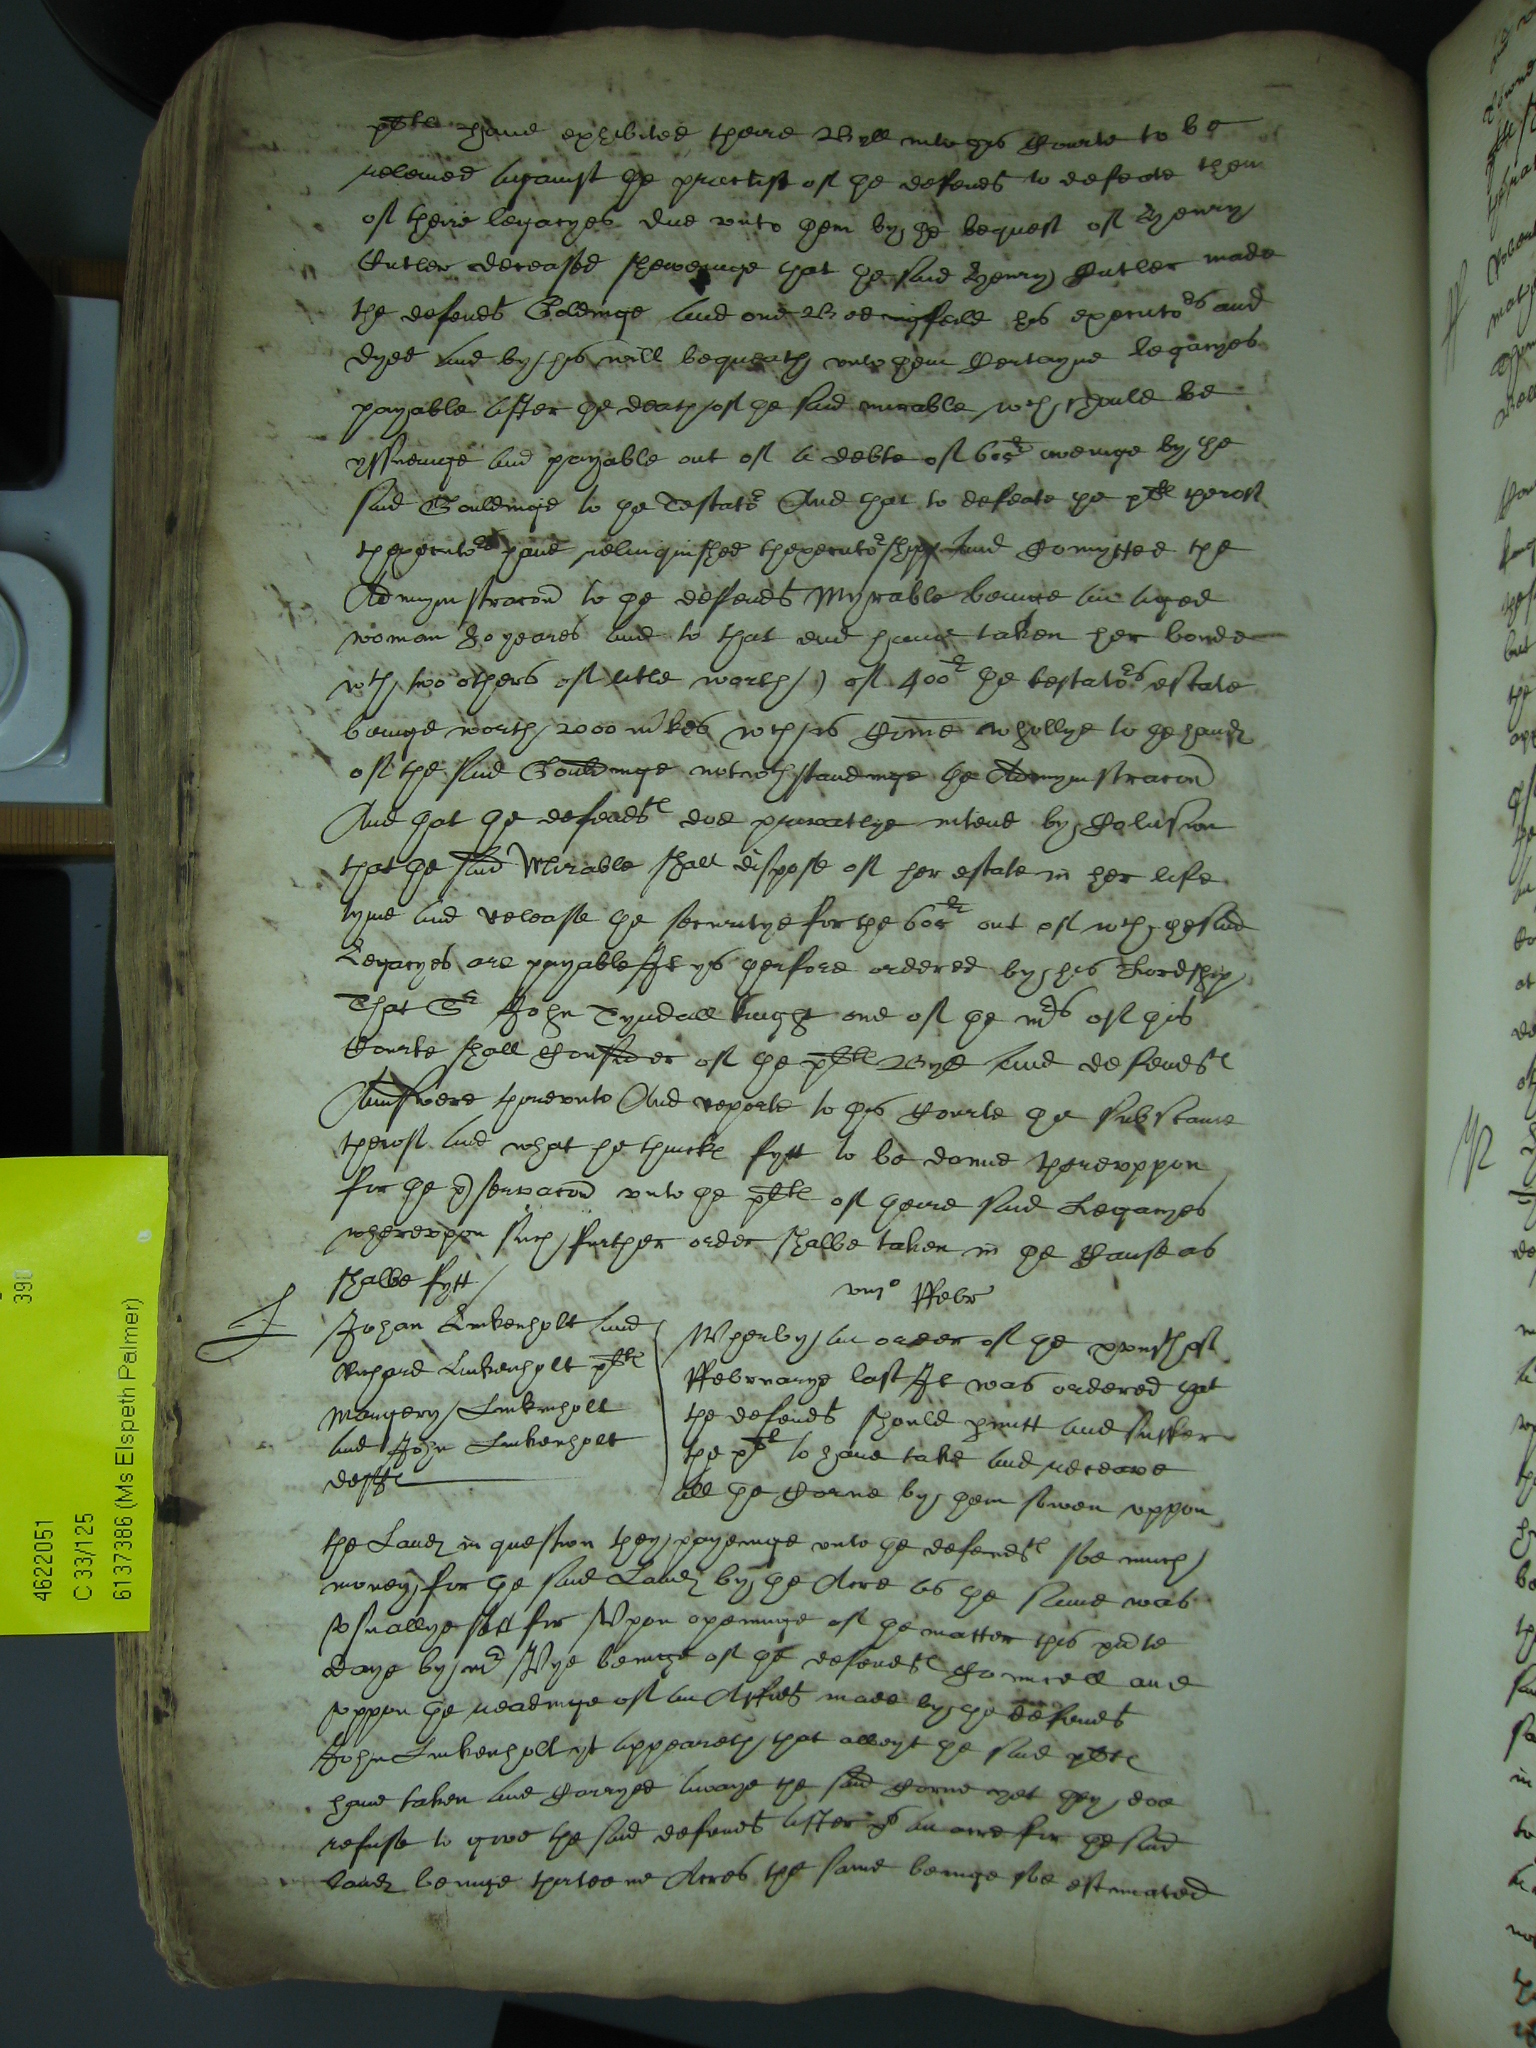 pltes have exhibited theire Byll into this Courte to be
releived against the practise of the defendt to defeate them
of theire legacyes due unto them by the bequest of Henry
Cutler deceassed shewenge that the said Henry Cutler made
the defendt Goldinge and one Bedingfeild his executors and
dyed and by his will bequeath unto them Certayne legacyes
payable after the death of the said mirable wch should be
yssueinge and payable out of a debte of 605li oweinge by the
said Gouldinge to the Testator And that to defeate the plte therof
thexecutors have relinquished thexecutorshipp And Comytted the
Admynistracon to the defendt Myrable beinge an aged
woman 80 yeares and to that end have taken her bonde
wth two others of litle worth /) of 400li the testators estate
beinge worth 2000 mkes wch is Come whollye to the handes
of the said Gouldinge notwthstandinge the Admynistracon
And that the defendtes doe privatlye intend by Colusion
that the said Mirable shall dispose of her estate in her life
tyme and release the securitye for the 605li out of wch the said
Legacyes are payable It ys therfore ordered by his Lordship
That Sr John Tyndall knight one of the mrs of this
Courte shall Consider of the pltes Byll and defendtes
Aunswere thereunto And reporte to this Courte the substance
therof and what he thinkes fytt to be donne thereuppon
for the pservacon unto the pltes of theire said Legacyes
whereupon such further order shalbe taken in the Cause as
shalbe fytt /
viijo Febr
Johan Linkenholt and
Richard Linkenholt pltes
Margery Linkenholt
and John Linkenholt
defftes
Wherby an order of the of
Februarye last It was ordered that
the defendt should pmitt and suffer
the plt to have take and receave
all the Corne by them sowen uppon
the Landes in question they payeinge unto the defendtes soe much
money for the said Landes by the Acre as the same was
usuallye sett for Upon openinge of the matter this pnte
daye by mr Wye beinge of the defendtes Councell and
uppon the readinge of an Affidt made by the defendt
John Linkenholt yt appeareth that albeyt the said pltes
have taken and Carryed awaye the said Corne yet they doe
refuse to give the said defendt after xs an acre for the said
landes beinge thirteene Acres the same beinge soe estimated
4622051
C 33/125
6137386 (Ms Elspeth Palmer)
390